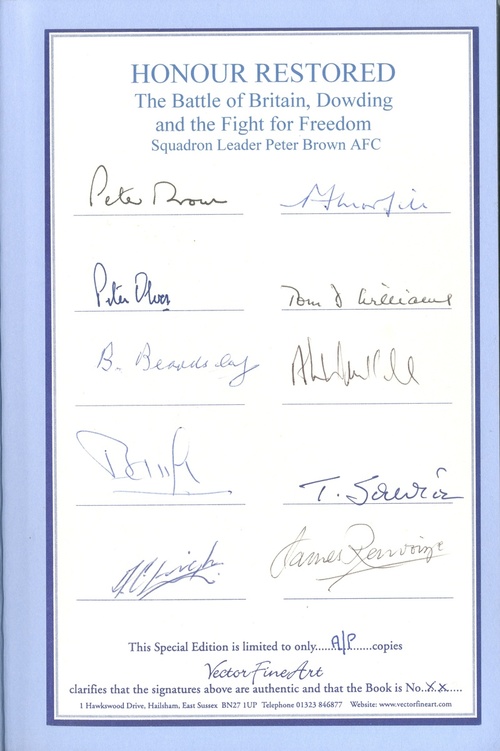 HONOUR RESTORED
The Battle of Britain, Dowding
and the Fight for Freedom
Squadron Leader Peter Brown AFC
Peter Brown
Peter Olver
Tom D Williams
B. Beardsley
T.
James Renvoize
This Special Edition is limited to only.....A/P......copies
VectorFineArt
clarifies that the signatures above are authentic and that the Book is No.XX.....
1 Hawkswood Drive, Hailsham, East Sussex BN27 1UP Telephone 01323 846877 Website: www.vectorfineart.com